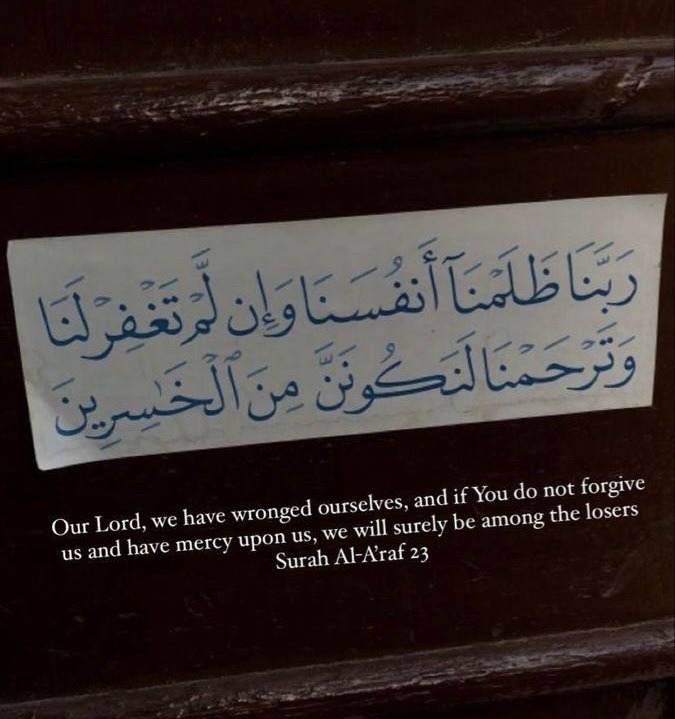 رَبَّنَا ظَلَمْنَآ أَنفُسَنَا وَإِن لَّمْ تَغْفِرْ لَنَا
وَتَرْحَمْنَا لَنَكُونَنَّ مِنَ ٱلْخَـٰسِرِينَ
Our Lord, we have wronged ourselves, and if You do not forgive
us and have mercy upon us, we will surely be among the losers
Surah Al-A'raf 23